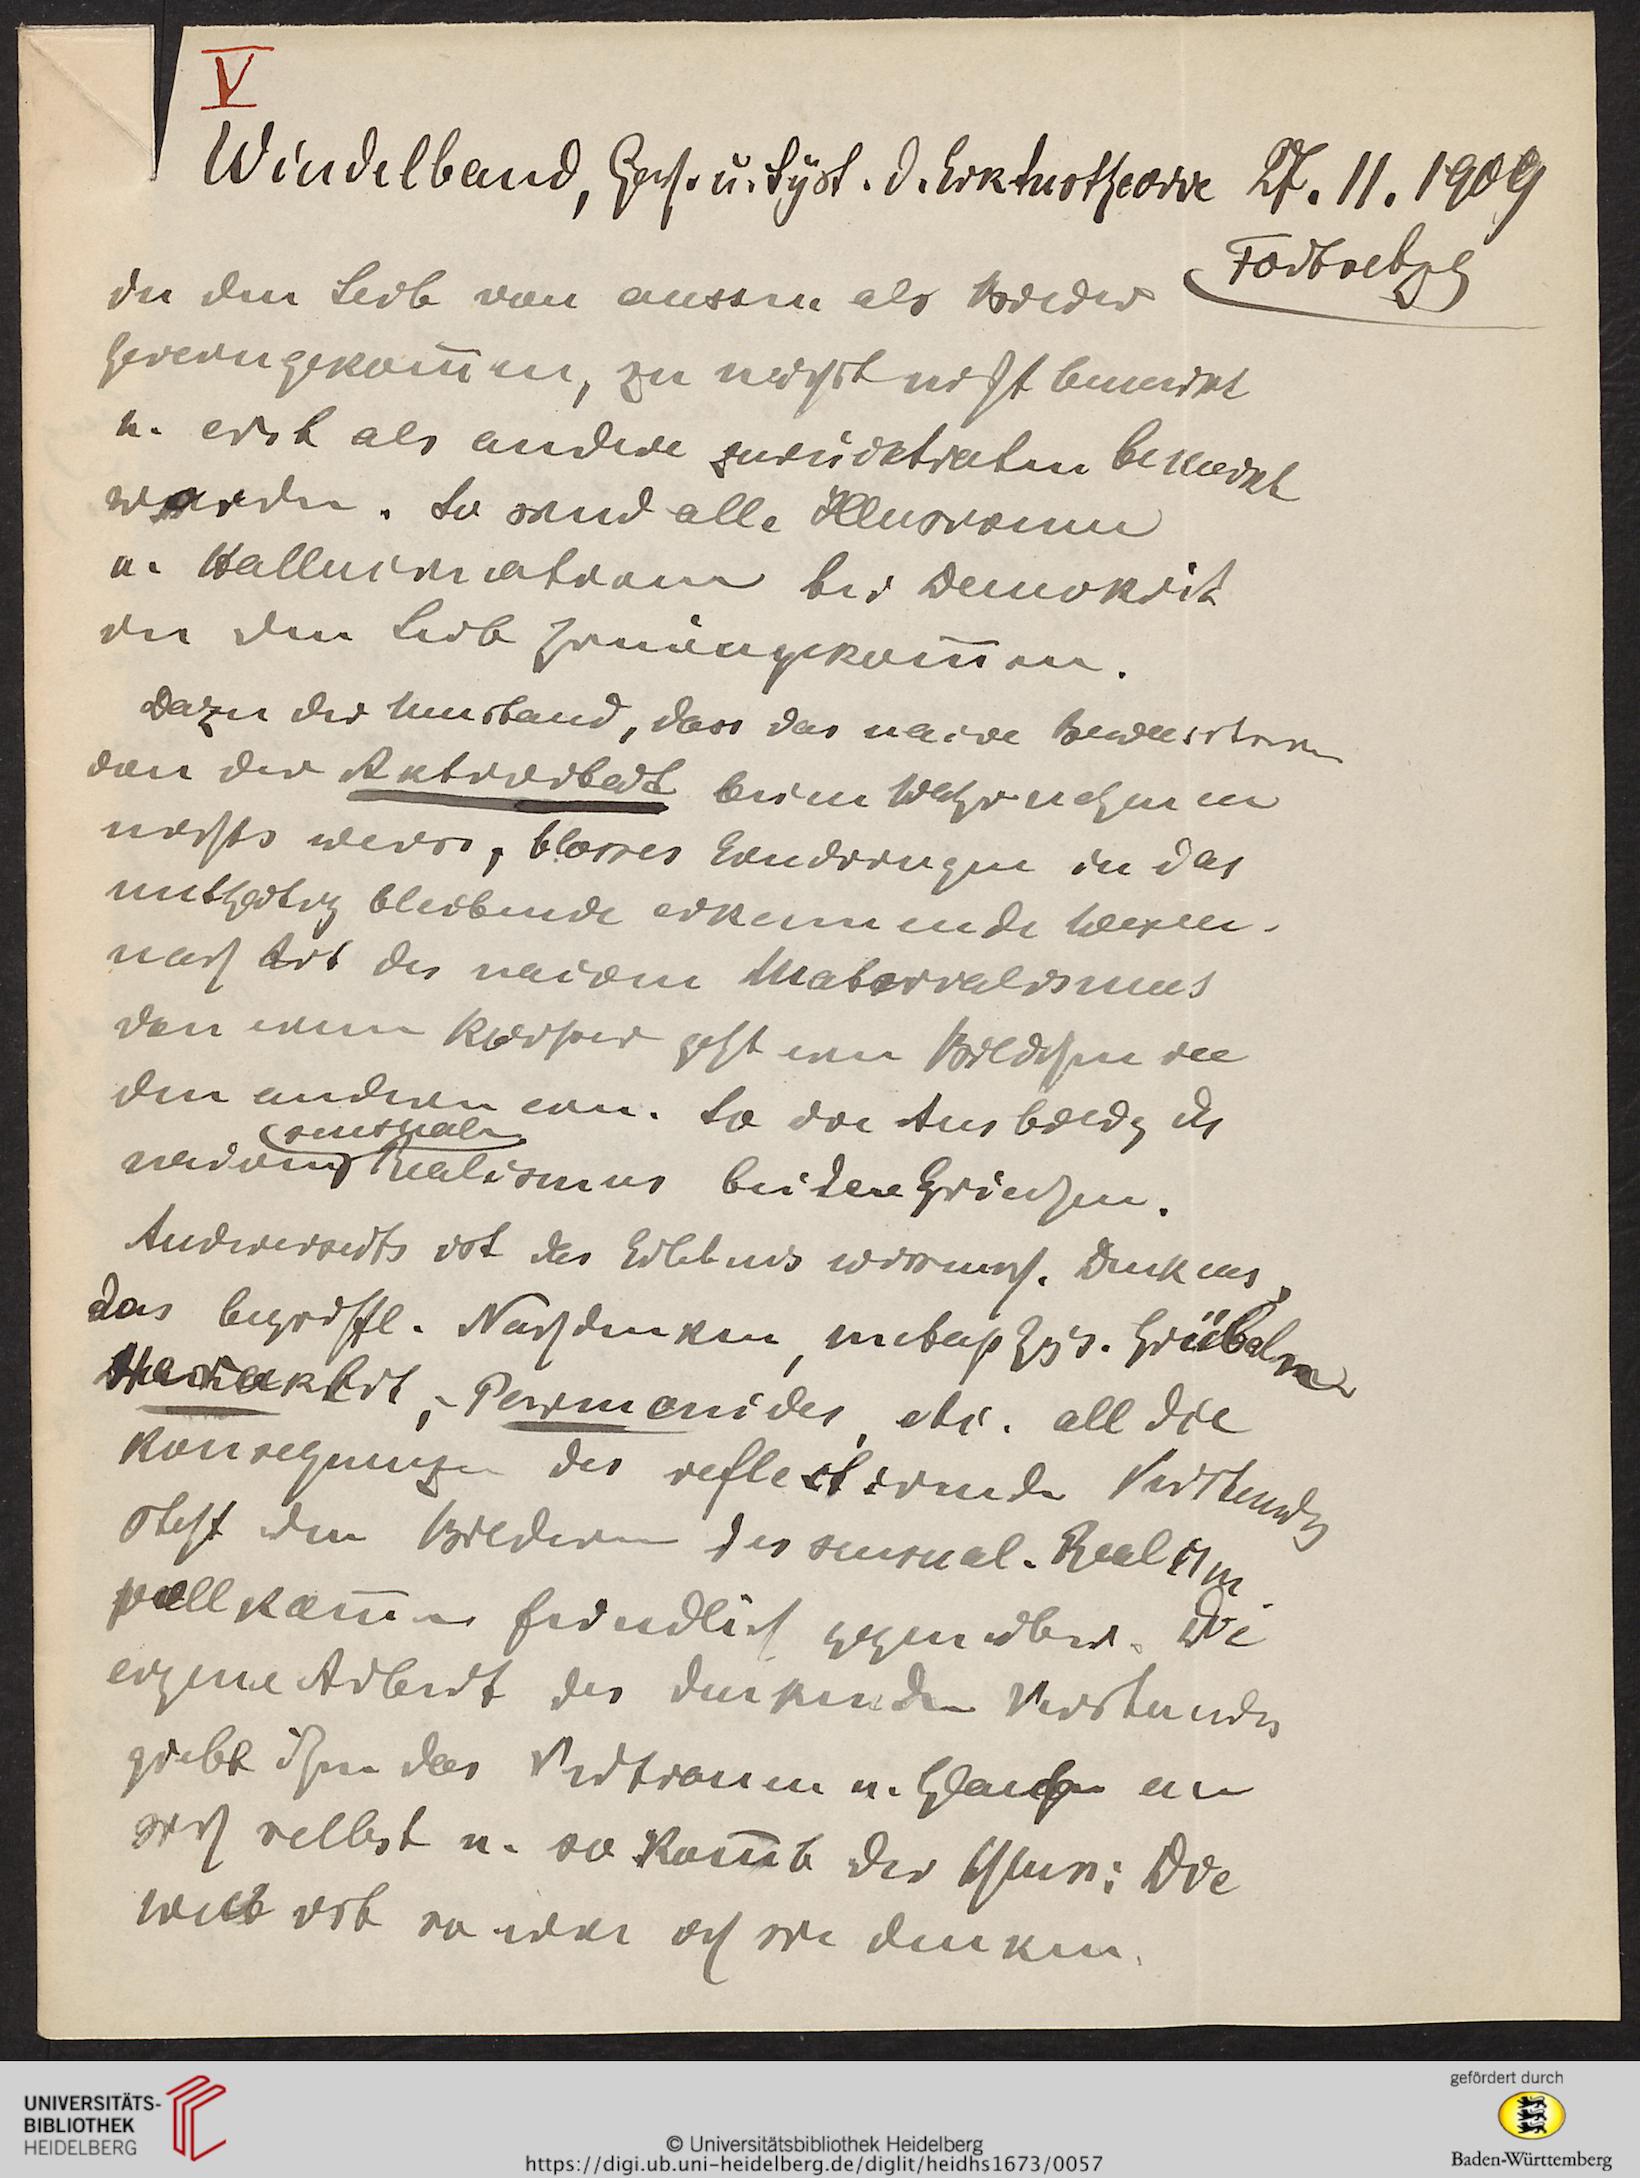 V
Windelband, Gesch. u. Syst. d. Erktnistheorie 27. 11. 1909
Fortsetzg
in den Leib von aussen als Bilder
hereingekom̄en, zu nächst nicht bemerkt
u. erst als andere zurücktraten bemerkt
worden. So sind alle Illusionen
u. Hallucinationen bei Demokrit
in den Leib hineingekom̄en.
Dazu der Umstand, dass das naive Bewusstsein
von der Aktivität beim Wahrnehmen
nichts weiss, blosses Eindringen in das
unthätig bleibende erkennende Wesen.
nach Art des naiven Materialismus
von einem Körper geht ein Bildchen in
den andern ein. So die Ausbildg des
(sensual.
naiven) Realismus bei den Griechen.
Andrerseits ist das Erlebnis wissensch. Denkens,
das begriffl. Nachdenken, metaphys. Grübeln
Heraklit, Parmenides, etc. all die
Konsequenzen des reflectirenden Verstandes
steht den Bildern des sensual. Realism
vollkom̄en feindlich gegenüber. Die
eigene Arbeit des denkenden Verstandes
giebt ihm das Vertrauen u. Glauben an
sich selbst u. so kom̄t der Schluss: Die
Welt ist so wie ich sie denken.
UNIVERSITÄTS-
BIBLIOTHEK
HEIDELBERG
© Universitätsbibliothek Heidelberg
https://digi.ub.uni-heidelberg.de/diglit/heidhs1673/0057
gefördert durch
Baden-Württemberg